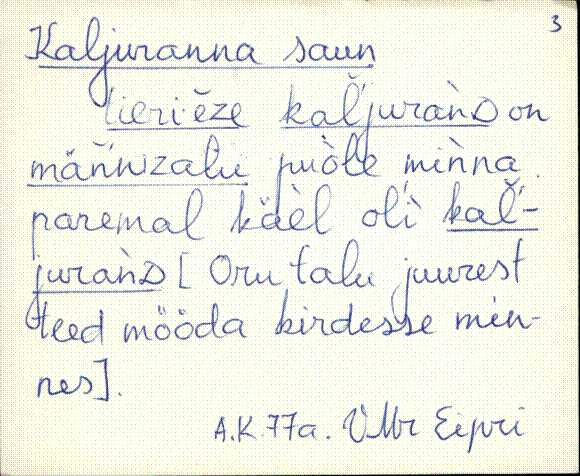 3
Kaljuranna saun
lieri·ĕze kal̆'jurànD on
mäńńizalu puòle mìnna
paremal käèl olì kal̆'-
jurànD [Oru talu juurest
teed mööda kirdesse min-
nes].
A.K. 77a. VMr Eipri